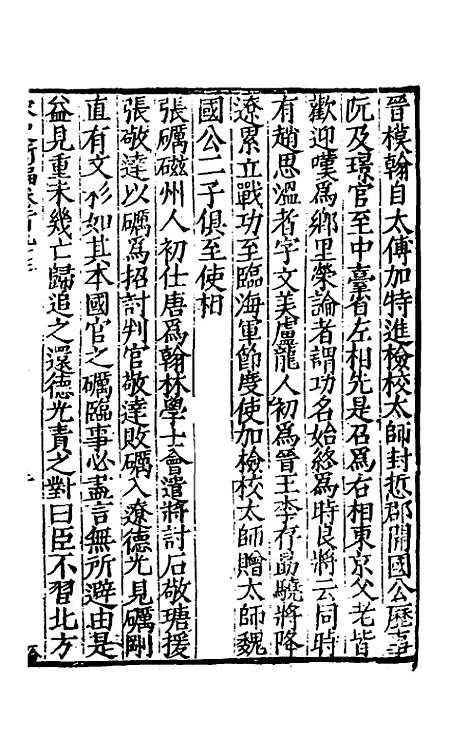 晉模翰自太傅加特進檢校太師封悊郡開國公歷事
阮及璟官至中臺省左相先是召爲右相東京父老皆
歡迎嘆爲鄉里榮論者謂功名始終爲時良將云同時
有趙思溫者字文美盧龍人初爲晉王李存勗驍將降
遼累立戰功至臨海軍節度使加檢校太師贈太師魏
國公二子俱至使相
張礪磁州人初仕唐爲翰林學士會遣將討石敬瑭援
張敬達以礪爲招討判官敬達敗礪入遼德光見礪剛
直有文彩如其本國官之礪臨事必盡言無所避由是
益見重未幾亡歸追之還德光責之對曰臣不習北方